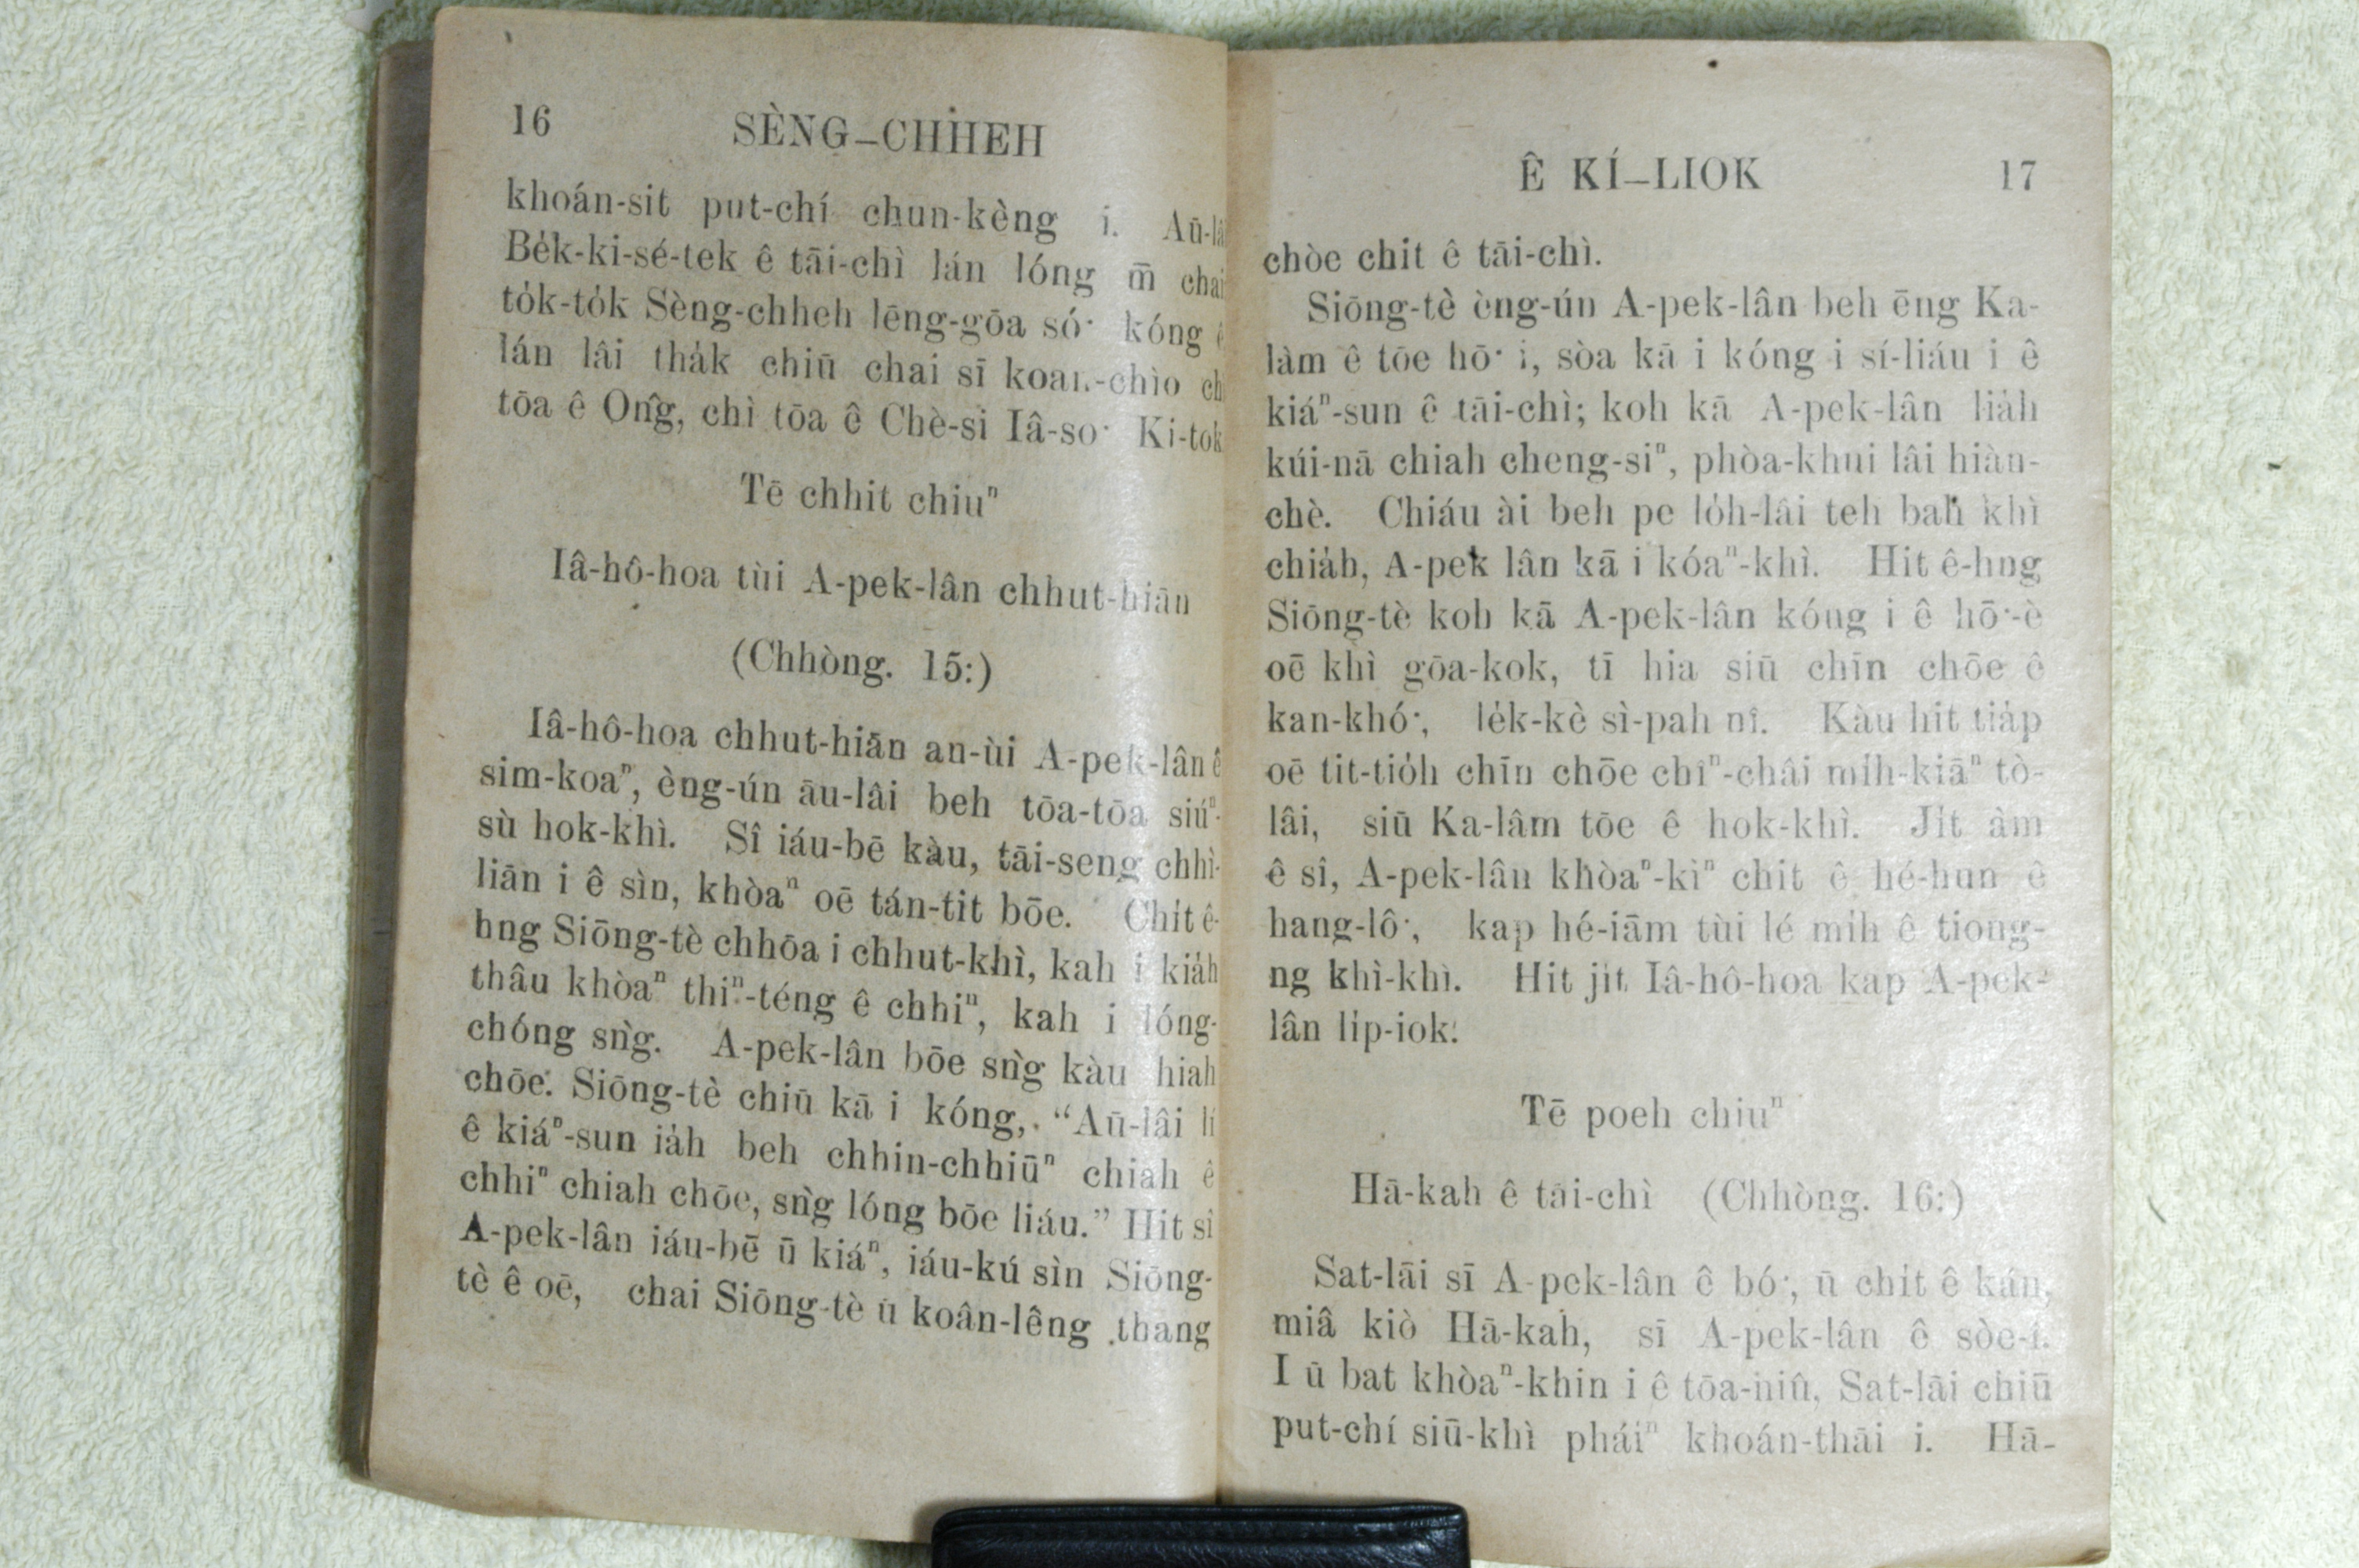 16 SÈNG-CHHEH
khoán-sit put-chí chun-kèng i. Aū-lâ
Be̍k-ki-sé-tek ê tāi-chì lán lóng m̄ chai
to̍k-to̍k Sèng-chheh lēng-gōa só͘ kóng ê
lán lâi tha̍k chiū chai sī koan-chìo ch
tōa ê Ông, chì tōa ê Chè-si Iâ-so͘ Ki-tok
Tē chhit chiuⁿ
Iâ-hô-hoa tùi A-pek-lân chhut-hiān
(Chhòng. 15:)
Iâ-hô-hoa chhut-hiān an-ùi A-pek-lân ê
sim-koaⁿ, èng-ún āu-lâi beh tōa-tōa siúⁿ-
sù hok-khì. Sî iáu-bē kàu, tāi-seng chhì-
liān i ê sìn, khòaⁿ oē tán-tit bōe. Chi̍t ê-
hng Siōng-tè chhōa i chhut-khì, kah i kia̍h
thâu khòaⁿ thiⁿ-téng ê chhiⁿ, kah i lóng-
chóng sǹg. A-pek-lân bōe sǹg kàu hiah
chōe. Siōng-tè chiū kā i kóng, “Aū-lâi lí
ê kiáⁿ-sun ia̍h beh chhin-chhiūⁿ chiah ê
chhiⁿ chiah chōe, sǹg lóng bōe liáu.” Hit sî
A-pek-lân iáu-bē ū kiáⁿ, iáu-kú sìn Siōng-
tè ê oē, chai Siōng-tè ū koân-lêng thang
Ê KÍ-LIOK 17
chòe chit ê tāi-chì.
Siōng-tè èng-ún A-pek-lân beh ēng Ka-
làm ê tōe hō͘ i, sòa kā i kóng i sí-liáu i ê
kiáⁿ-sun ê tāi-chì; koh kā A-pek-lân lia̍h
kúi-nā chiah cheng-siⁿ, phòa-khui lâi hiàn-
chè. Chiáu ài beh pe lo̍h-lâi teh bah khì
chia̍h, A-pek lân kā i kóaⁿ-khì. Hit ê-hng
Siōng-tè koh kā A-pek-lân kóng i ê hō͘-è
oē khì gōa-kok, tī hia siū chīn chōe ê
kan-khó͘, le̍k-kè sì-pah nî. Kàu hit tia̍p
oē tit-tio̍h chīn chōe chîⁿ-châi mi̍h-kiāⁿ tò-
lâi, siū Ka-lâm tōe ê hok-khì. Ji̍t àm
ê sî, A-pek-lân khòaⁿ-kìⁿ chit ê hé-hun ê
hang-lô͘, kap hé-iām tùi lé mi̍h ê tiong-
ng khì-khì. Hit ji̍t Iâ-hô-hoa kap A-pek-
lân li̍p-iok.
Tē poeh chiuⁿ
Hā-kah ê tāi-chì (Chhòng. 16:)
Sat-lāi sī A-pek-lân ê bó͘, ū chi̍t ê kán,
miâ kiò Hā-kah, sī A-pek-lân ê sòe-î.
I ū bat khòaⁿ-khin i ê tōa-niû, Sat-lāi chiū
put-chí siū-khì pháiⁿ khoán-thāi i. Hā-